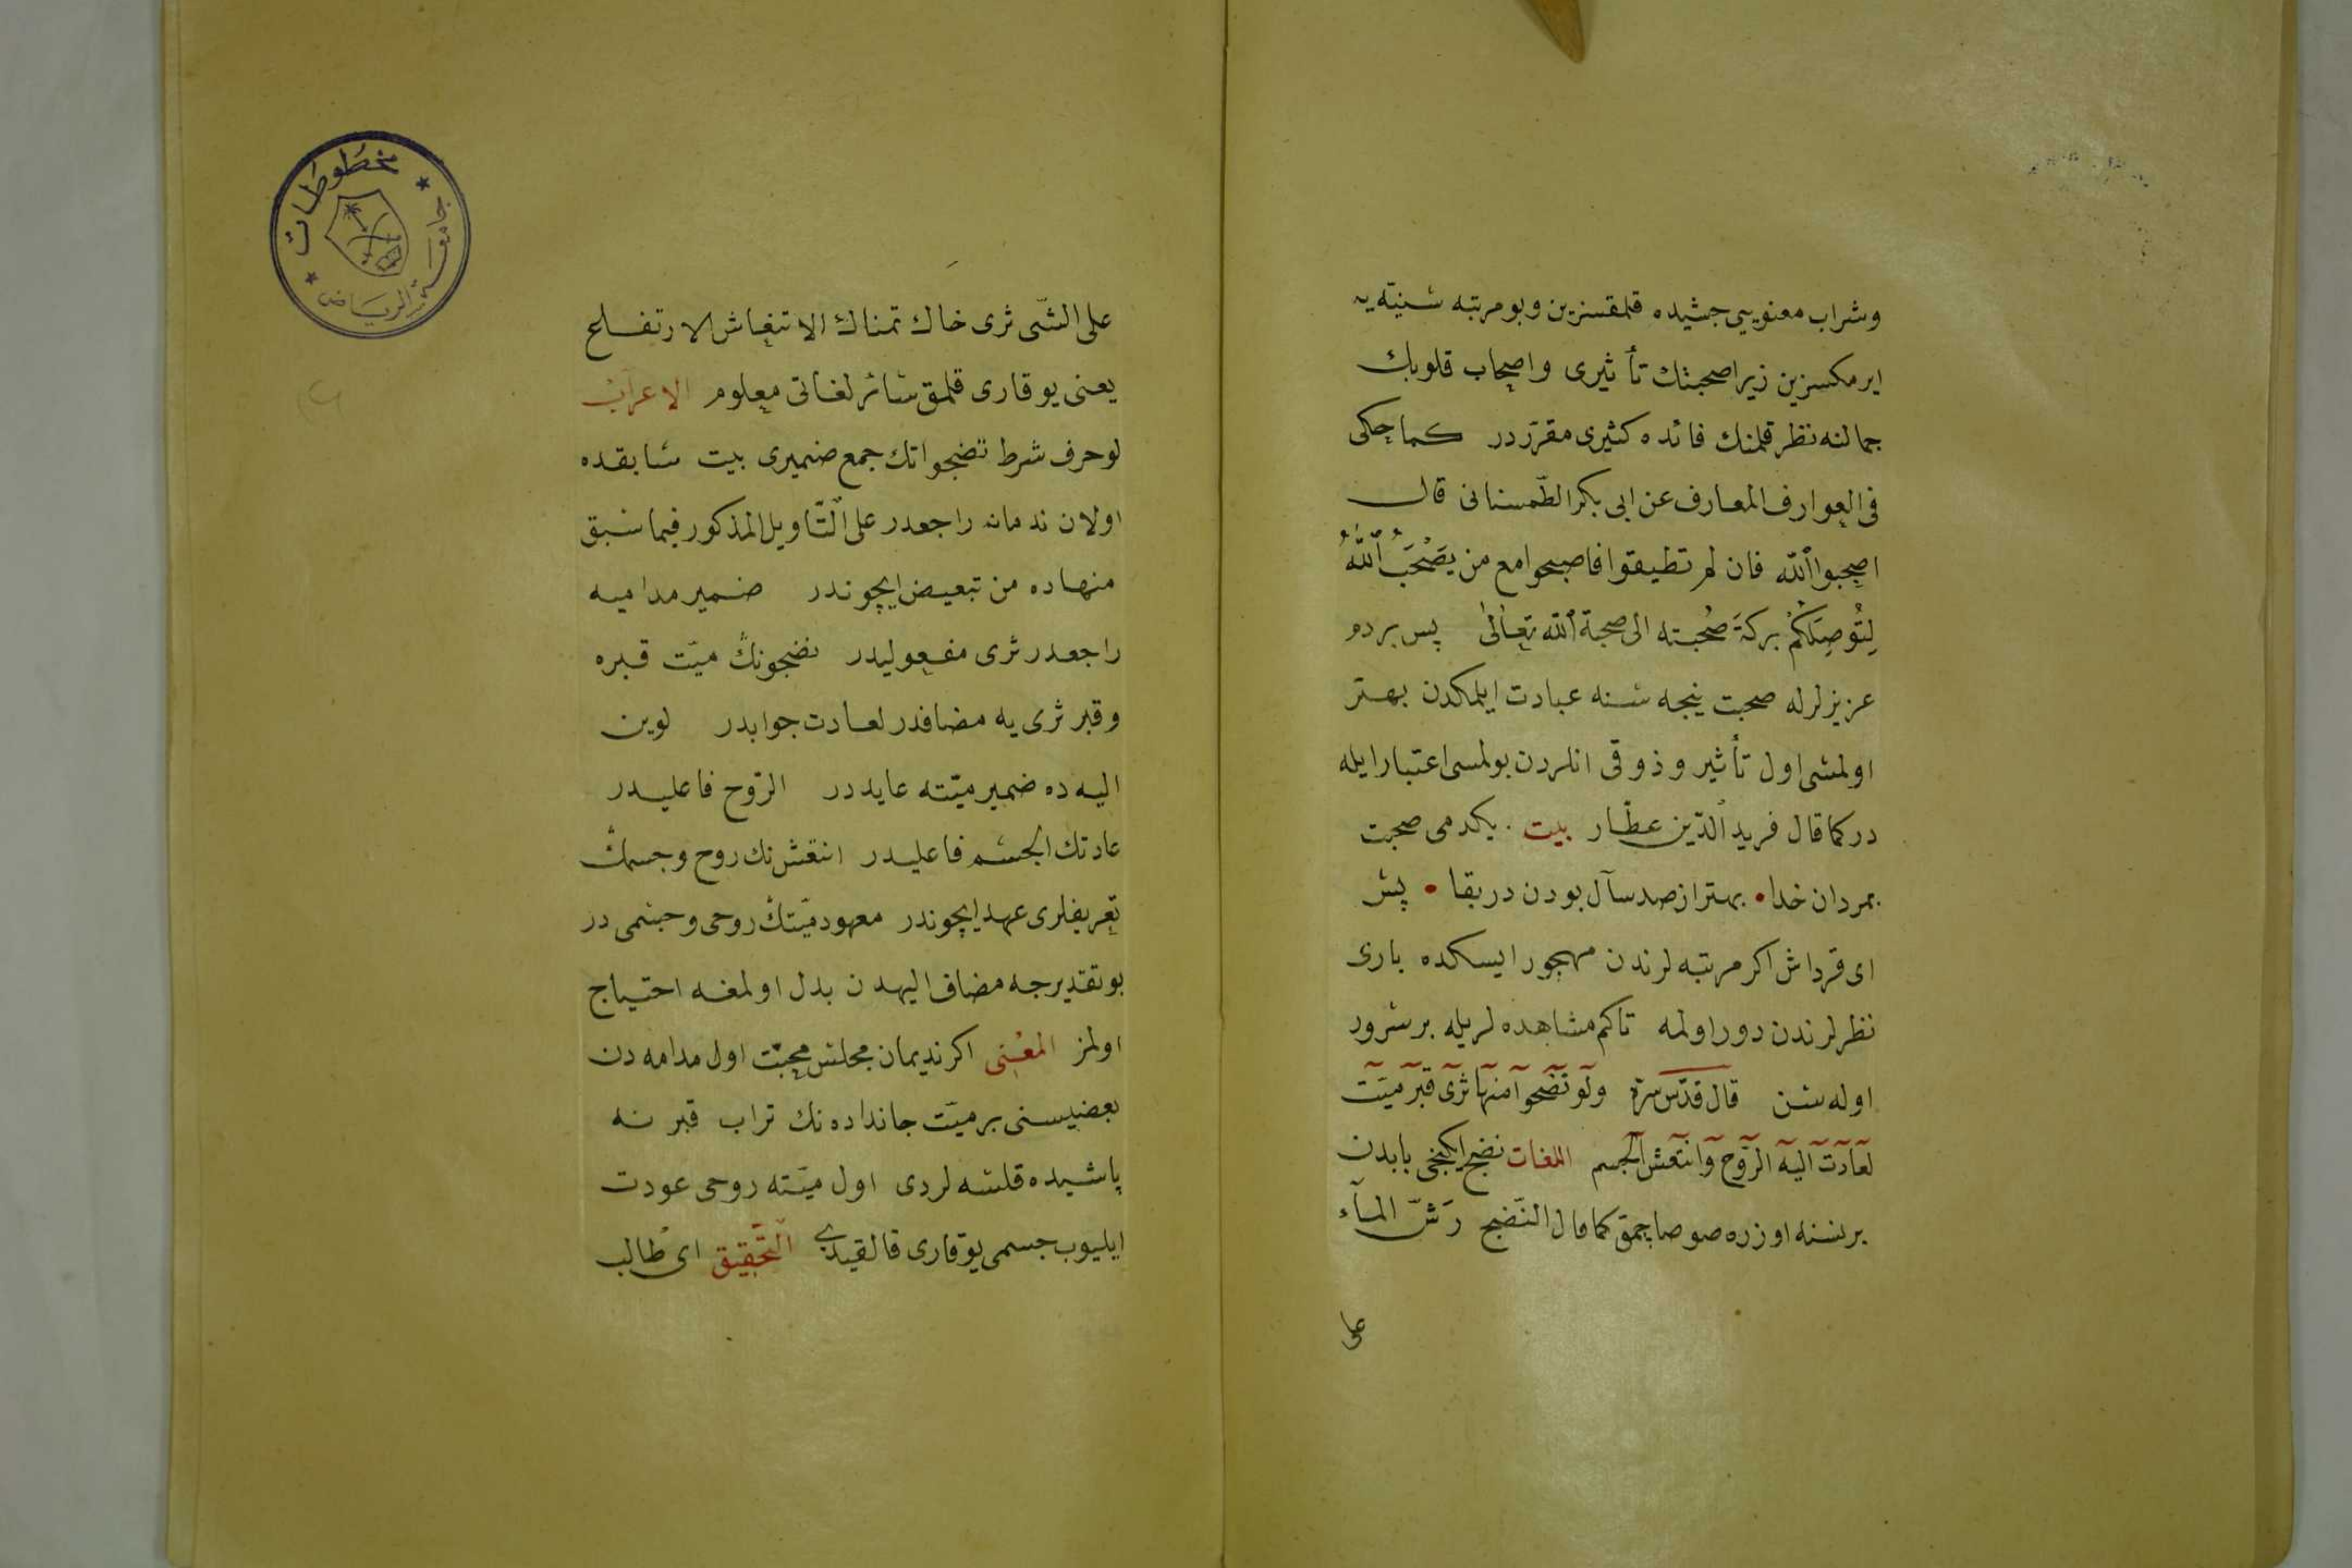 وشراب معنویی جشیده قلمقسزین وبومرتبه سنیّه یه
ایرمکسزین زیرا صحبتك تأثیری واصحاب قلوبك
جمالنه نظر قلمنك فائده کثیری مقرّردر کما حکی
فی العوارف المعارف عن ابی بکر الطّمستانی قال
اصحبوا اللّه فان لم تطیقوا فاصبحوا مع من یَصْحَبُ اللّٰهَ
لِتُوصِلَکُمْ برکةَ صُحْبته الی صحبة اللّه تعالیٰ پس بردم
عزیزلرله صحبت نیجه سنه عبادت ایلمکدن بهتر
اولمشی اول تأثیر وذوقی انلردن بولمسی اعتبار ایله
در کما قال فرید الدّین عطّار بیت . یکدمی صحبت
بمردان خدا • بهتر از صد سآل بودن در بقا • پش
ای قرداش اکر مرتبه لرندن مهجور ایسکده باری
نظرلرندن دور اولمه تاکم مشاهده لریله بر سرور
اوله سن قال قدّس سرّه ولو نضحوا منها ثری قبر میّت
لعادت الیه الرّوح وانتعش الجسم اللغات نضح ایکنجی بابدن
برنسنه اوزره صو صاچمق کما قال النّضح رَشّ المآء
علی
علی الشّی ثری خاك نمناك الانتعاش الارتفاع
یعنی یوقاری قلمق سائر لغاتی معلوم الاعراب
لو حرف شرط نضحوا نك جمع ضمیری بیت سابقده
اولان ندمانه راجعدر علی التّاویل المذکور فیما سبق
منهاده من تبعیض ایچوندر ضمیر مدامیه
راجعدر ثری مفعولیدر نضحونك میّت قبره
وقبر ثری یه مضافدر لعادت جوابدر لوین
الیه ده ضمیر میّته عایددر الرّوح فاعلیدر
عادتك الجسم فاعلیدر انتعش نك روح وجسمك
تعریفلری عهد ایچوندر معهود میّتك روحی وجسمی در
بو تقدیرجه مضاف الیهدن بدل اولمغه احتیاج
اولمز المعنی اکر ندیمان مجلس محبّت اول مدامه دن
بعضیسنی بر میّت جانداده نك تراب قبرنه
پاشیده قلسه لردی اول میّته روحی عودت
ایلیوب جسمی یوقاری قالقیدی التّحقیق ای طالب
مخطوطات
جامعة الرياض